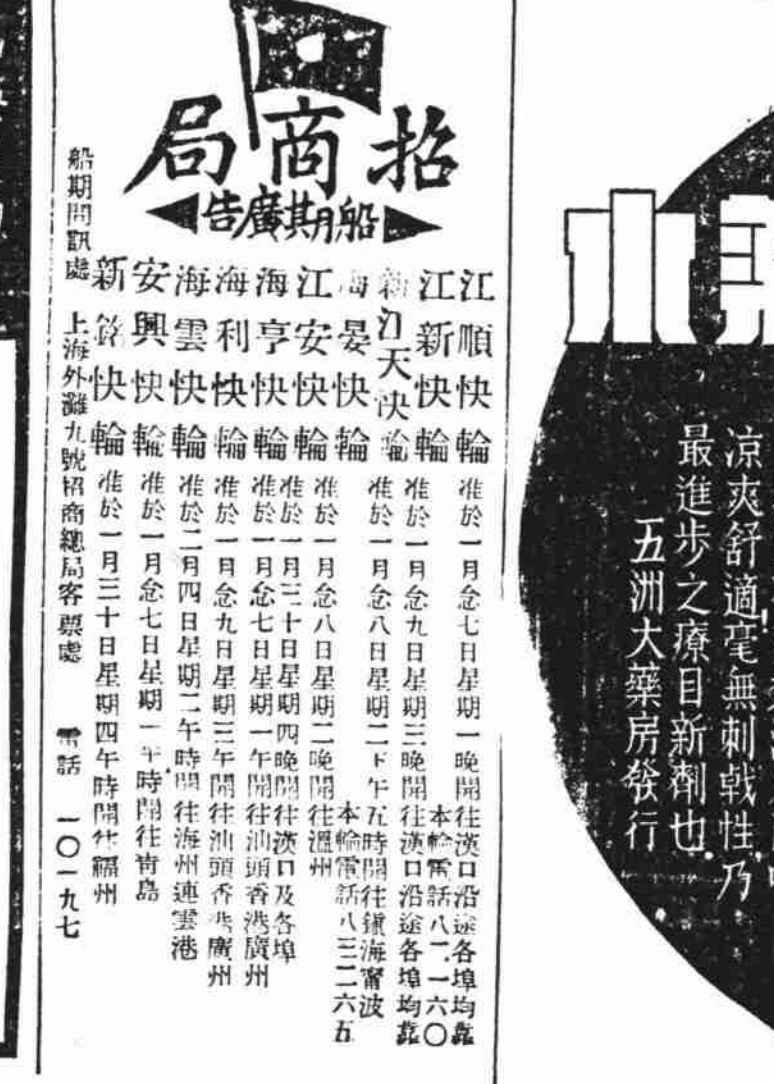 招商局
船期廣告
江順快輪 准於一月念七日星期一晚開往漢口沿途各埠均靠
本輪電話八二一六〇
江新快輪 准於一月念九日星期三晚開往漢口沿途各埠均靠
新江天快輪 准於一月念八日星期二下午五時開往鎮海甯波
本輪電話八三二六五
海晏快輪 准於一月念八日星期二晚開往溫州
江安快輪 准於一月三十日星期四晚開往漢口及各埠
海亨快輪 准於一月念七日星期一午開往汕頭香港廣州
海利快輪 准於一月念九日星期三午開往汕頭香港廣州
海雲快輪 准於二月四日星期二午時開往海州連雲港
安興快輪 准於一月念七日星期一午時開往青島
新銘快輪 准於一月三十日星期四午時開往福州
船期問訊處 上海外灘九號招商總局客票處 電話 一〇一九七
水
凉爽舒適毫無刺戟性乃
最進步之療目新劑也.
五洲大藥房發行